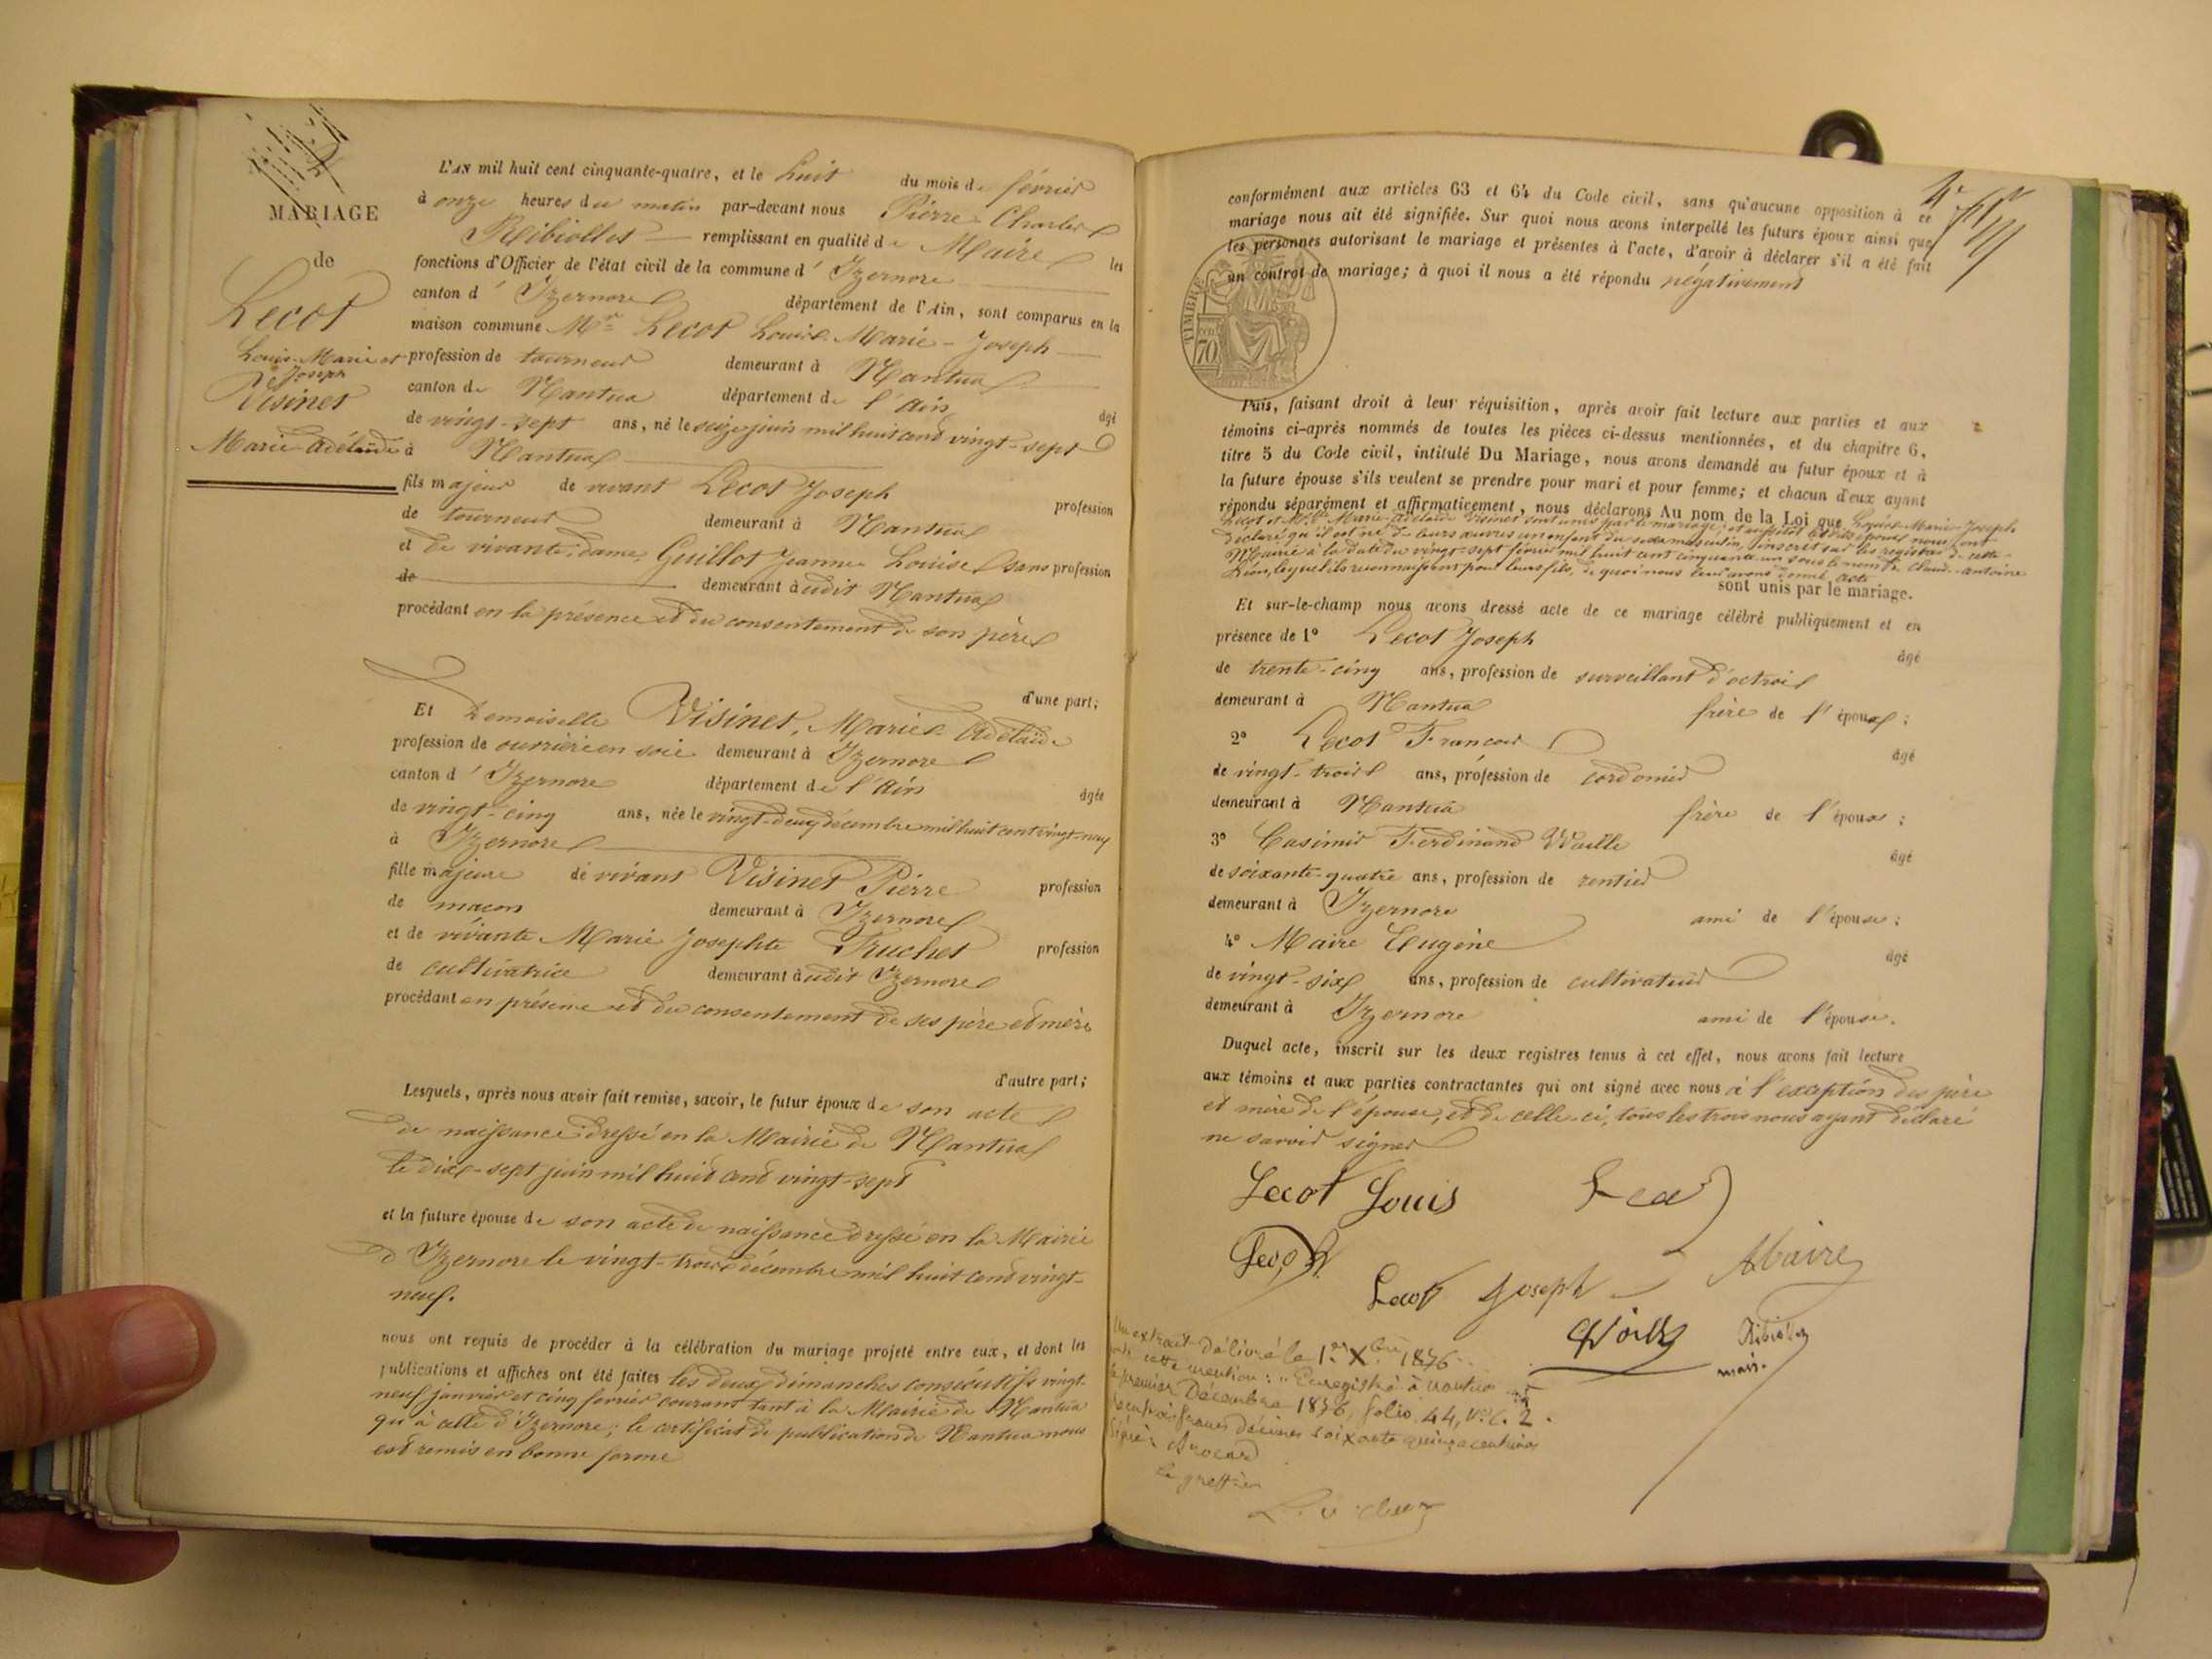 MARIAGE
de
Lecot
Louis-Marie et
Joseph
Visinet
Marie Adélaïde
L'AN mil huit cent cinquante-quatre, et le huit du mois de février
à onze heures du matin par-devant nous Pierre Charles
Ribiollet remplissant en qualité de Maire les
fonctions d'Officier de l'état civil de la commune d' Izernore
canton d' Izernore département de l'Ain, sont comparus en la
maison commune Mr Lecot Louis-Marie-Joseph
profession de tourneur demeurant à Nantua
canton de Nantua département de l'Ain âgé
de vingt-sept ans, né le seize juin mil huit cent vingt-sept
à Nantua
fils majeur de vivant Lecot Joseph profession
de tourneur demeurant à Nantua
et de vivante dame Guillot Jeanne Louise sans profession
de demeurant audit Nantua
procédant en la présence et du consentement de son père
d'une part;
Et Demoiselle Visinet, Marie Adélaïde
profession de ouvrière en soie demeurant à Izernore
canton d' Izernore département de l'Ain âgée
de vingt-cinq ans, née le vingt-deux décembre mil huit cent vingt-neuf
à Izernore
fille majeure de vivant Visinet Pierre profession
de maçon demeurant à Izernore
et de vivante Marie Josephte Truchet profession
de cultivatrice demeurant audit Izernore
procédant en présence et du consentement de ses père et mère
d'autre part;
Lesquels, après nous avoir fait remise, savoir, le futur époux de son acte
de naissance dressé en la Mairie de Nantua
le dix-sept juin mil huit cent vingt-sept
et la future épouse de son acte de naissance dressé en la Mairie
d'Izernore le vingt-trois décembre mil huit cent vingt-
neuf.
nous ont requis de procéder à la célébration du mariage projeté entre eux, et dont les
publications et affiches ont été faites les deux dimanches consécutifs vingt-
neuf janvier et cinq février courant tant à la Mairie de Nantua
qu'à celle d'Izernore; le certificat de publication de Nantua nous
est remis en bonne forme
conformément aux articles 63 et 64 du Code civil, sans qu'aucune opposition à ce
mariage nous ait été signifiée. Sur quoi nous avons interpellé les futurs époux ainsi que
les personnes autorisant le mariage et présentes à l'acte, d'avoir à déclarer s'il a été fait
un contrat de mariage; à quoi il nous a été répondu négativement
TIMBRE
70
Puis, faisant droit à leur réquisition, après avoir fait lecture aux parties et aux
témoins ci-après nommés de toutes les pièces ci-dessus mentionnées, et du chapitre 6,
titre 5 du Code civil, intitulé Du Mariage, nous avons demandé au futur époux et à
la future épouse s'ils veulent se prendre pour mari et pour femme; et chacun d'eux ayant
répondu séparément et affirmativement, nous déclarons Au nom de la Loi que Louis-Marie-Joseph
Lecot et Mlle Marie-Adélaïde Visinet sont unis par le mariage; et aussitôt lesdits époux nous ont
déclaré qu'il est né de leurs œuvres un enfant du sexe masculin, inscrit sur les registres de cette
Mairie à la date du vingt-sept février mil huit cent cinquante-un sous le nom de Claude-Antoine
Léon, lequel ils reconnaissent pour leur fils, de quoi nous leur avons donné acte
sont unis par le mariage.
Et sur-le-champ nous avons dressé acte de ce mariage célébré publiquement et en
présence de 1° Lecot Joseph âgé
de trente-cinq ans, profession de surveillant d'octroi
demeurant à Nantua frère de l'époux;
2° Lecot François âgé
de vingt-trois ans, profession de cordonnier
demeurant à Nantua frère de l'époux;
3° Casimir Ferdinand Waille âgé
de soixante-quatre ans, profession de rentier
demeurant à Izernore ami de l'épouse;
4° Maire Eugène âgé
de vingt-six ans, profession de cultivateur
demeurant à Izernore ami de l'épouse.
Duquel acte, inscrit sur les deux registres tenus à cet effet, nous avons fait lecture
aux témoins et aux parties contractantes qui ont signé avec nous à l'exception des père
et mère de l'épouse, et de celle-ci, tous les trois nous ayant déclaré
ne savoir signer
Lecot Louis
Lecot Joseph
Maire
Ribiollet
maire
Un extrait délivré le 1er Xbre 1876
cette mention: "Enregistré à Nantua
le premier Décembre 1876, folio 44, V° C. 2.
francs décimes soixante quinze centimes
Signé:
le greffier